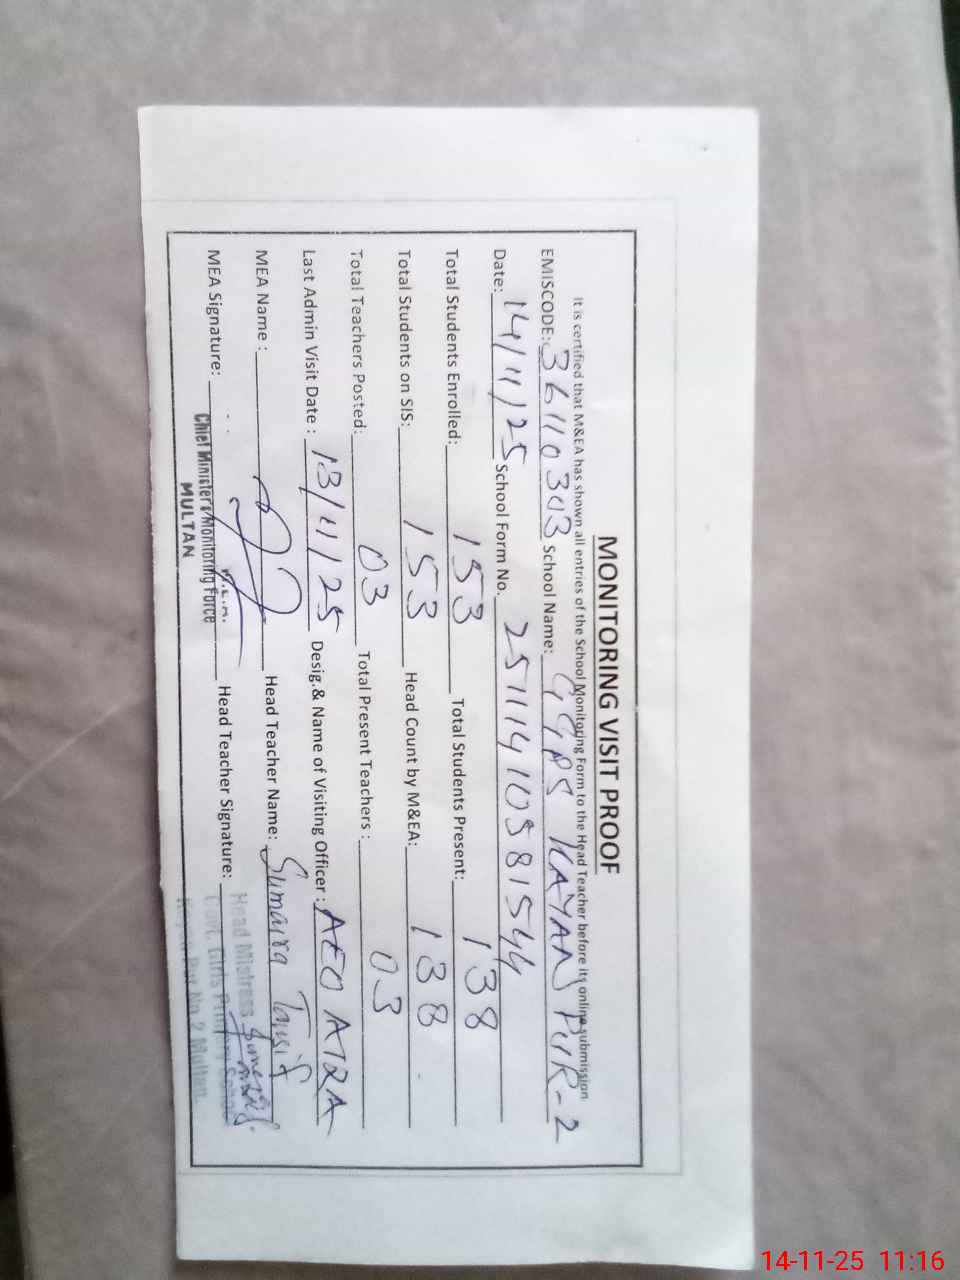 MONITORING VISIT PROOF
It is certified that M&EA has shown all entries of the School Monitoring Form to the Head Teacher before its online submission
EMISCODE: 36110303 School Name: GGPS KAYAN PUR-2
Date: 14/11/25 School Form No. 25111410581544
Total Students Enrolled: 153 Total Students Present: 138
Total Students on SIS: 153 Head Count by M&EA: 138
Total Teachers Posted: 03 Total Present Teachers: 03
Last Admin Visit Date: 13/11/25 Desig.& Name of Visiting Officer: AEO ATRA
MEA Name: Head Teacher Name: Sumaira Tausif
MEA Signature: Head Teacher Signature:
Chief Minister's Monitoring Force
MULTAN
Head Mistress
Govt. Girls Primary School
Kayan Pur No.2 Multan.
14-11-25 11:16